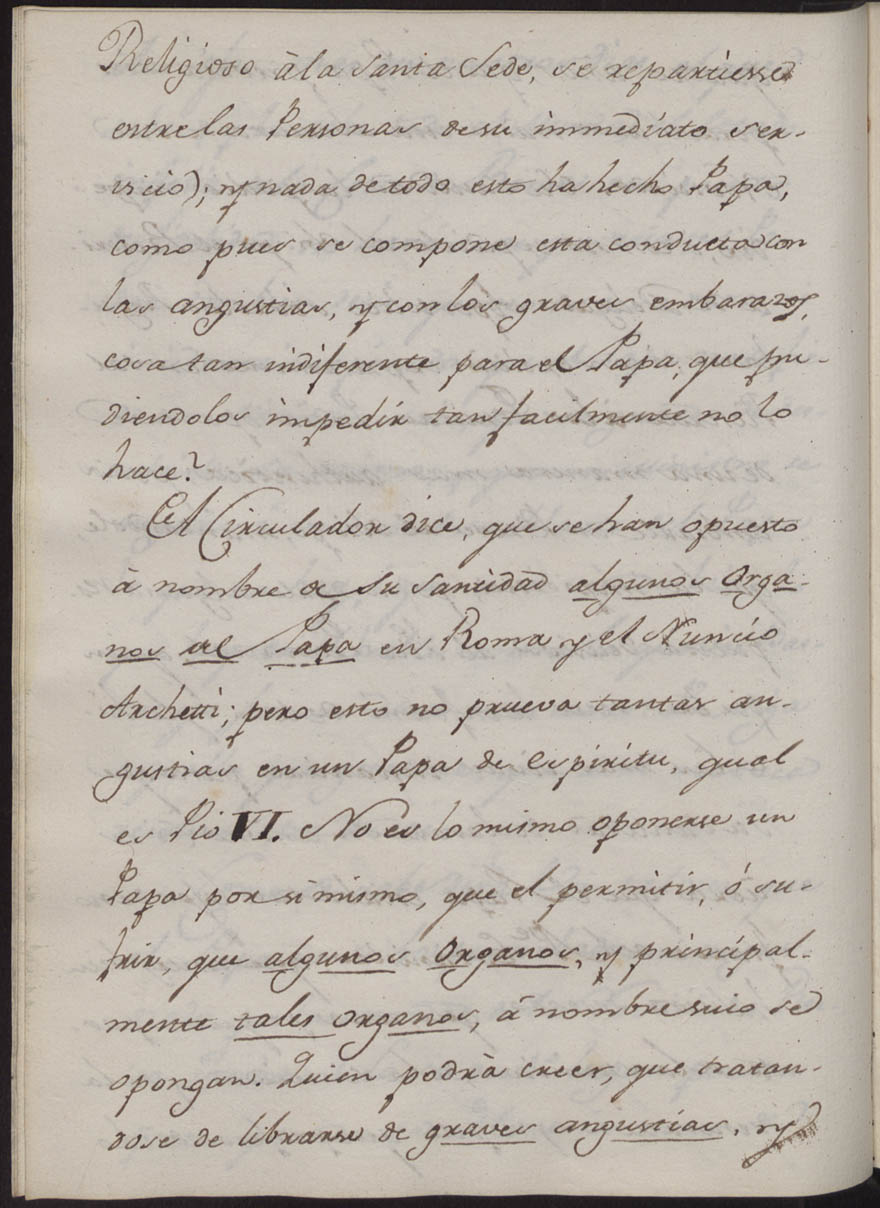 Religioso à la Santa Sede, se repartiesse
entre las Personas de su immediato ser-
vicio); y nada de todo esto ha hecho Papa,
como pues se compone esta conducta con
las angustias, y con los graves embarazos,
cosa tan indiferente para el Papa, que pu-
diendolos impedir tan facilmente no lo
hace?
El Circulador dice, que se han opuesto
à nombre de su Santidad algunos Orga-
nos del Papa en Roma y el Nuncio
Archetti; pero esto no prueva tantas an-
gustias en un Papa de espiritu, qual
es Pio VI. No es lo mismo oponerse un
Papa por si mismo, que el permitir, ó su-
frir, que algunos Organos, y principal-
mente tales organos, á nombre suio se
opongan. Quien podrà creer, que tratan-
dose de librarse de graves angustias, y